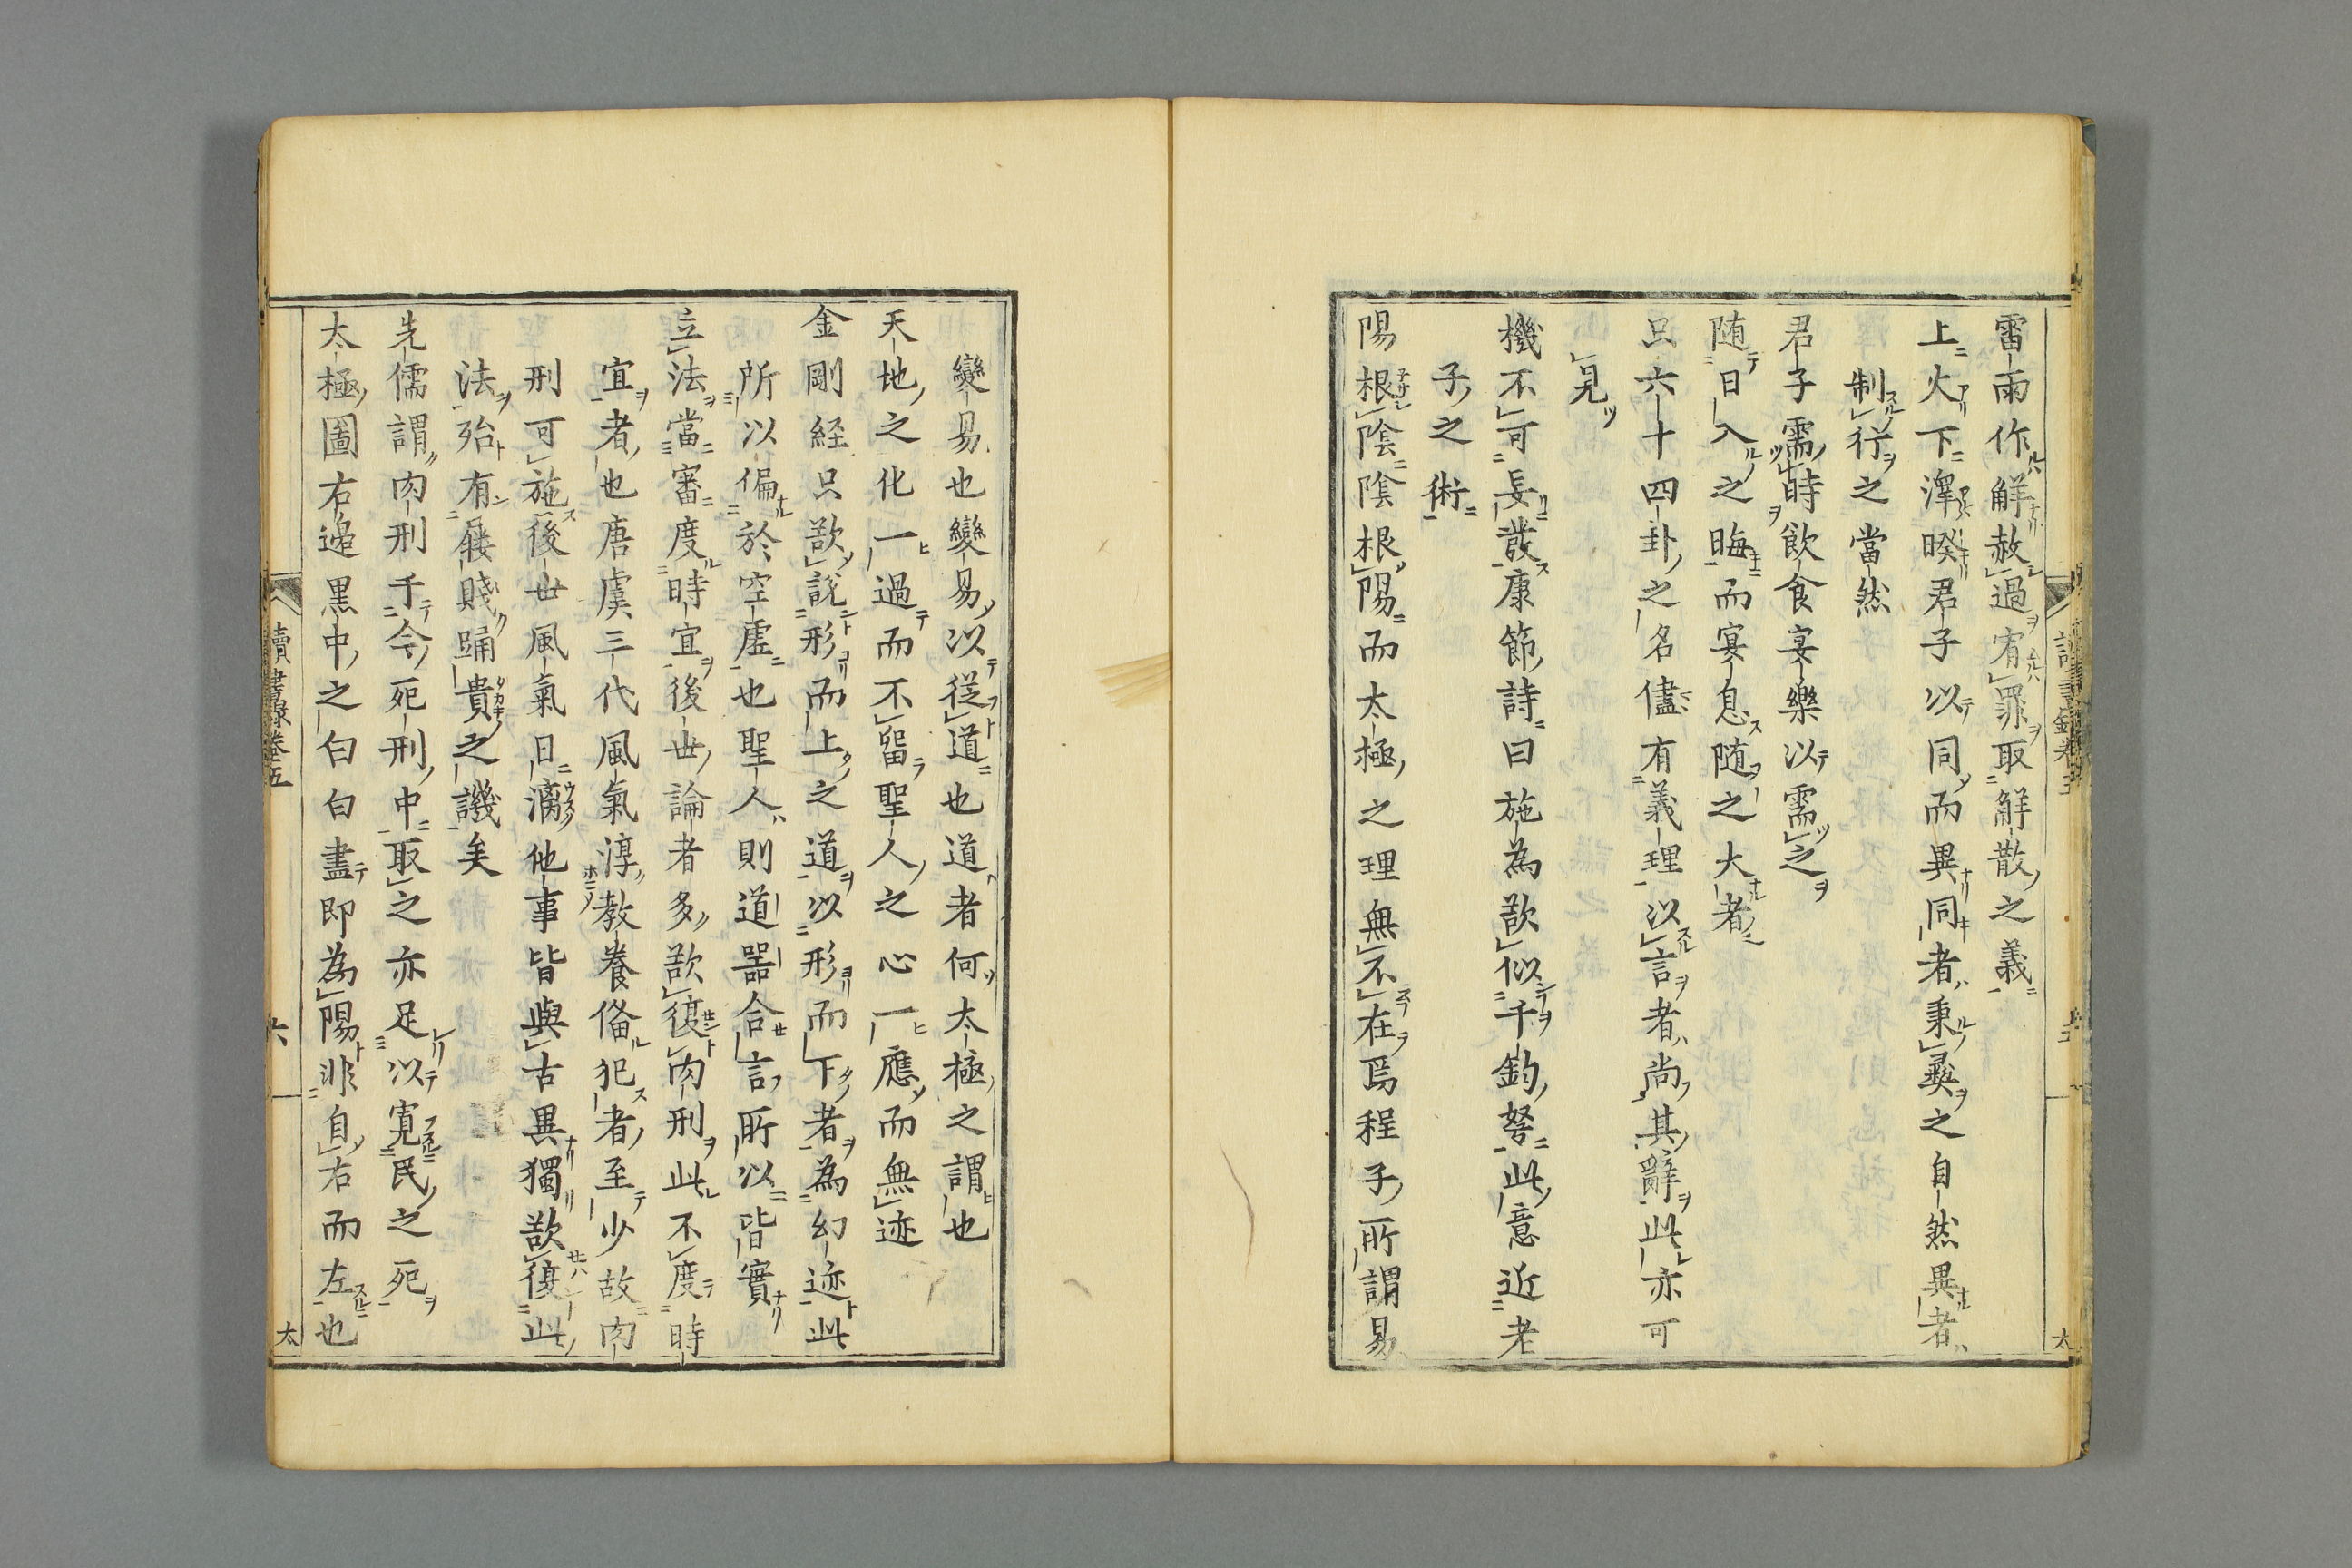 雷雨作解赦過宥罪取解散之義
上火下澤睽君子以同而異同者秉彛之自然異者
制行之當然
君子需時飲食宴樂以需之
随日入之晦而宴息随之大者
只六十四卦之名儘有義理以言者尚其辭此亦可
見
機不可妄發康節詩曰施為欲似千鈞弩此意近老
子之術
陽根陰陰根陽而太極之理無不在焉程子所謂易
變易也變易以從道也道者何太極之謂也
天地之化一過而不留聖人之心一應而無迹
金剛経只欲說形而上之道以形而下者為幻迹此
所以偏於空虛也聖人則道器合言所以皆實
立法當審度時宜後世論者多欲復肉刑此不度時
宜者也唐虞三代風氣淳教養備犯者至少故肉
刑可施後世風氣日漓他事皆與古異獨欲復此
法殆有屨賤踊貴之譏矣
先儒謂肉刑千今死刑中取之亦足以寬民之死
太極圖右邊黒中之白白盡即為陽非自右而左也
讀書錄卷五
六
太